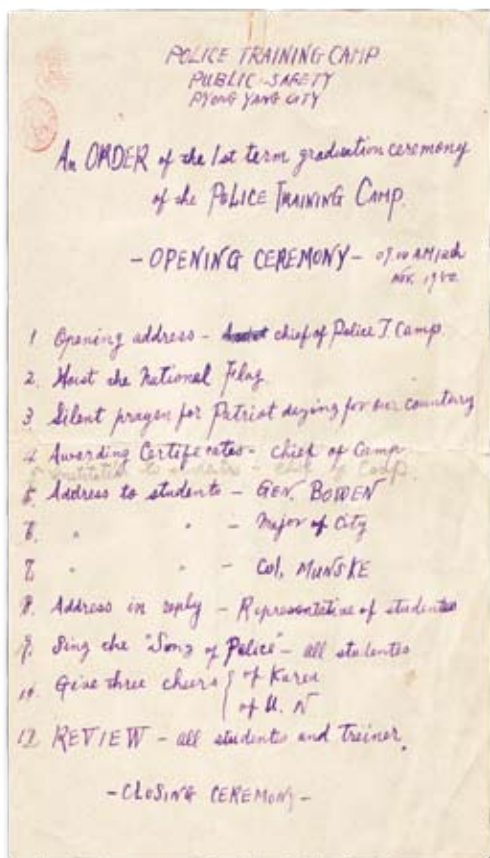 POLICE TRAINING CAMP
PUBLIC SAFETY
PYONG YANG CITY
An ORDER of the 1st term graduation ceremony
of the POLICE TRAINING CAMP.
- OPENING CEREMONY - 09.00 AM
NOV.
1 Opening address - chief of Police T. Camp.
2. Hoist the National Flag.
3. Silent prayer for Patriot dying for our country
4 Awarding Certificates - chief of Camp
chief of Camp.
5. Address to students - GEN. BOWEN
6. " " - Major of City
7. " " - Col. MUNSKE
8. Address in reply - Representative of students
9. Sing the "Song of Police" - all students
10. Give three cheers { of Korea
of U. N
12. REVIEW - all students and treiner.
- CLOSING CEREMONY -